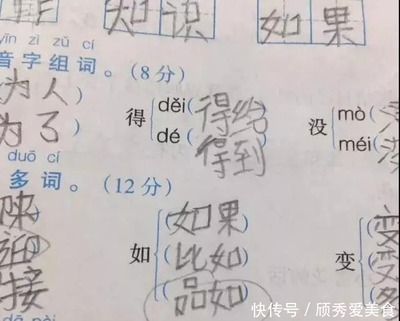 知识 如果
yīn zì zǔ cí
音字组词。(8分)
为人) 得 děi(得给 没 mò
为了) dé(得到 méi
duō cí
多词。(12分)
(如果
如 (比如 变
接 (品如
快传号/颀秀爱美食